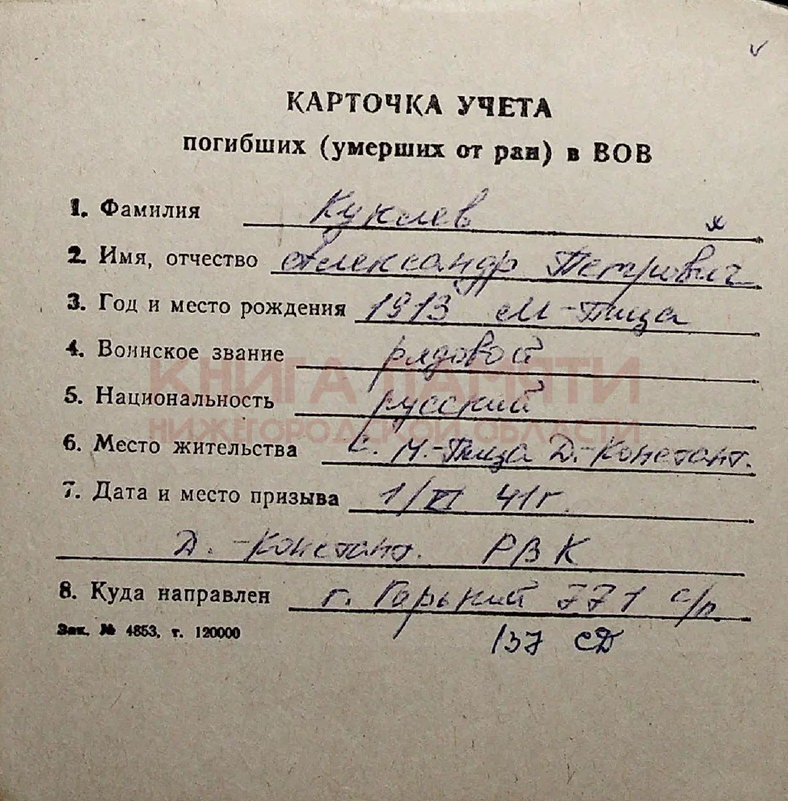 КАРТОЧКА УЧЕТА
погибших (умерших от ран) в ВОВ
1. Фамилия Куклев
2. Имя, отчество Александр Петрович
3. Год и место рождения 1913 М-Пица
4. Воинское звание рядовой
КНИГА ПАМЯТИ
5. Национальность русский
НИЖЕГОРОДСКОЙ ОБЛАСТИ
6. Место жительства с. М.-Пица Д.-Констант.
7. Дата и место призыва 1/VI 41г.
Д.-Констант. РВК
8. Куда направлен г. Горький 771 с/п
Зак. № 4853, т. 120000
137 СД